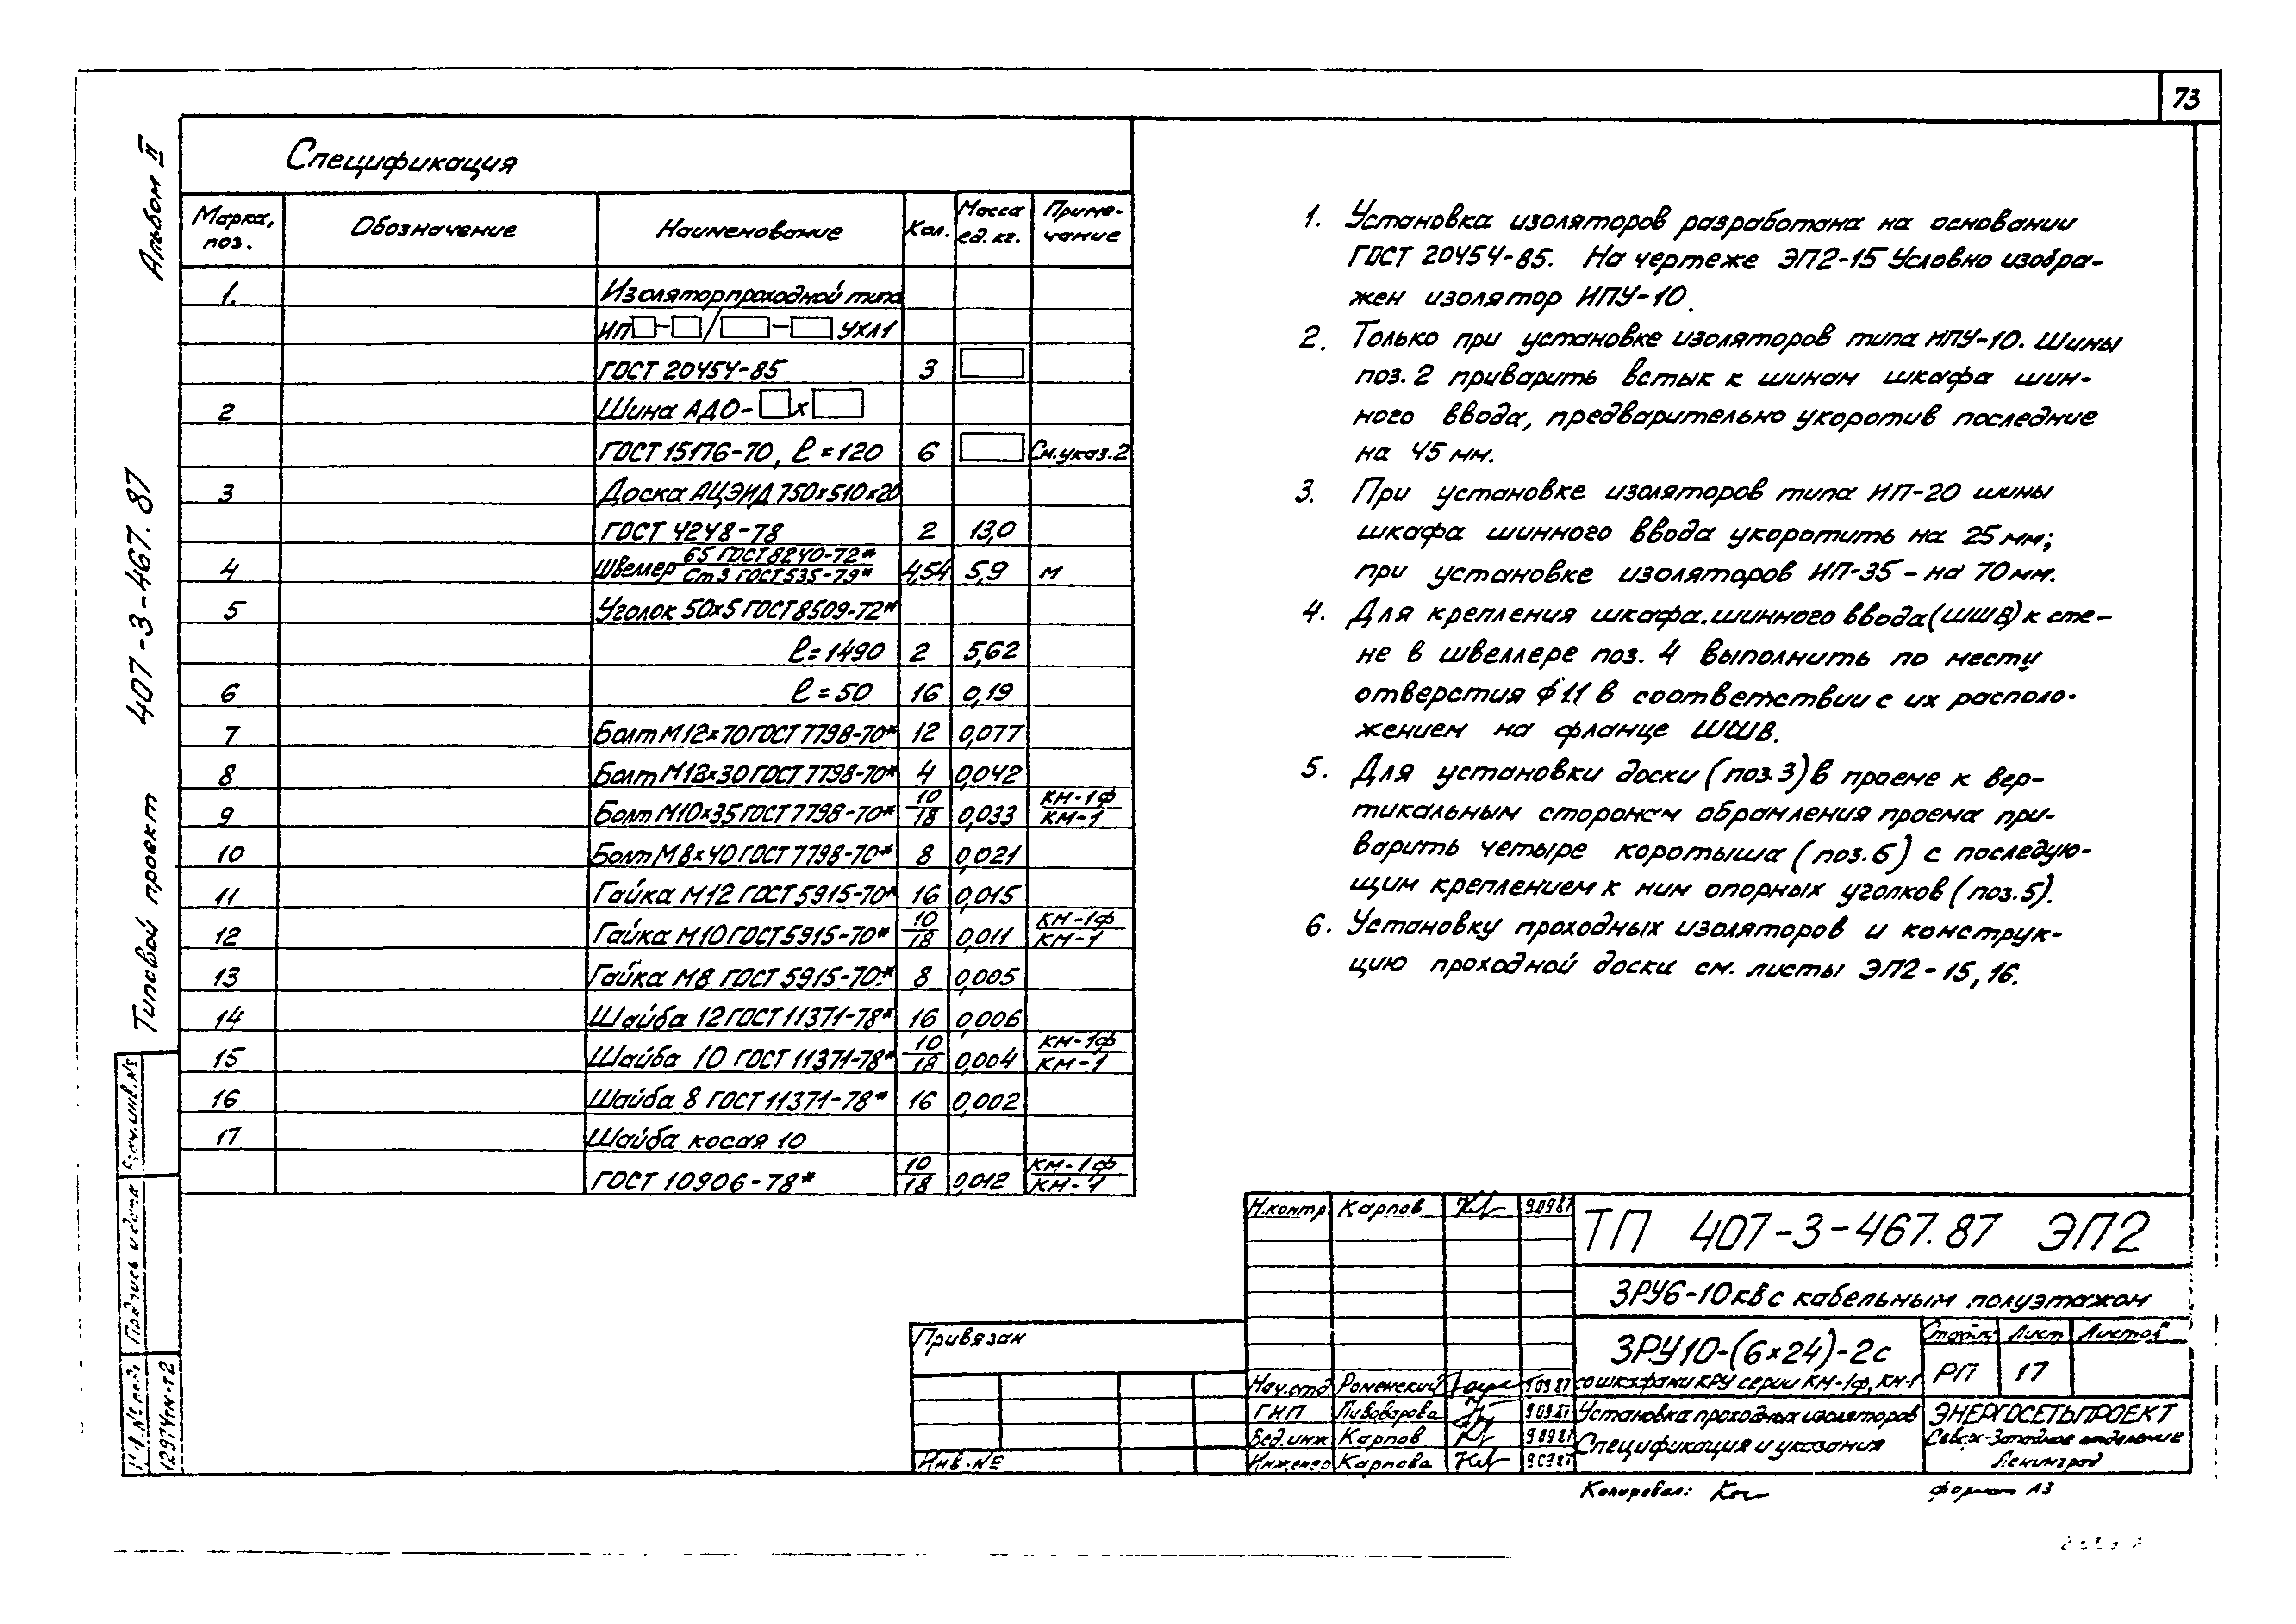 73
Альбом II
Типовой проект 407-3-467.87
Спецификация
Марка, поз. Обозначение Наименование Кол. Масса ед. кг. Примечание
1. Изолятор проходной типа
ИП□-□/□-□ УХЛ1
ГОСТ 20454-85 3
2 Шина АДО-□х□
ГОСТ 15176-70, ℓ=120 6 См. указ. 2
3 Доска АЦЭИД 750×510×20
ГОСТ 4248-78 2 13,0
4 Швеллер 65 ГОСТ 8240-72* / Ст3 ГОСТ 535-79* 4,54 5,9 м
5 Уголок 50×5 ГОСТ 8509-72*
ℓ=1490 2 5,62
6 ℓ=50 16 0,19
7 Болт М12×70 ГОСТ 7798-70* 12 0,077
8 Болт М12×30 ГОСТ 7798-70* 4 0,042
9 Болт М10×35 ГОСТ 7798-70* 10/18 0,033 КМ-1ф/КМ-1
10 Болт М8×40 ГОСТ 7798-70* 8 0,021
11 Гайка М12 ГОСТ 5915-70* 16 0,015
12 Гайка М10 ГОСТ 5915-70* 10/18 0,011 КМ-1ф/КМ-1
13 Гайка М8 ГОСТ 5915-70* 8 0,005
14 Шайба 12 ГОСТ 11371-78* 16 0,006
15 Шайба 10 ГОСТ 11371-78* 10/18 0,004 КМ-1ф/КМ-1
16 Шайба 8 ГОСТ 11371-78* 16 0,002
17 Шайба косая 10
ГОСТ 10906-78* 10/18 0,012 КМ-1ф/КМ-1
1. Установка изоляторов разработана на основании
ГОСТ 20454-85. На чертеже ЭП2-15 Условно изобра-
жен изолятор ИПУ-10.
2. Только при установке изоляторов типа ИПУ-10. Шины
поз. 2 приварить встык к шинам шкафа шин-
ного ввода, предварительно укоротив последние
на 45 мм.
3. При установке изоляторов типа ИП-20 шины
шкафа шинного ввода укоротить на 25 мм;
при установке изоляторов ИП-35 - на 70 мм.
4. Для крепления шкафа.шинного ввода (ШШВ) к сте-
не в швеллере поз. 4 выполнить по месту
отверстия ϕ 11 в соответствии с их располо-
жением на фланце ШШВ.
5. Для установки доски (поз.3) в проеме к вер-
тикальным сторонам обрамления проема при-
варить четыре коротыша (поз.6) с последую-
щим креплением к ним опорных уголков (поз.5).
6. Установку проходных изоляторов и конструк-
цию проходной доски см. листы ЭП2-15,16.
Взам.инв.№
Подпись и дата
12974тм-т2
Привязан
Инв.№
Н.контр. Карпов 9.09.87
Нач.отд Роменский
ГИП Пивоварова 9.09.87
Вед.инж Карпов 9.09.87
Инженер Карпова 9.09.87
ТП 407-3-467.87 ЭП2
ЗРУ6-10кВ с кабельным полуэтажом
ЗРУ10-(6×24)-2с
со шкафами КРУ серии КМ-1ф, КМ-1
Установка проходных изоляторов
Спецификация и указания
Стадия Лист Листов
РП 17
ЭНЕРГОСЕТЬПРОЕКТ
Северо-Западное отделение
Ленинград
Копировал:
формат А3